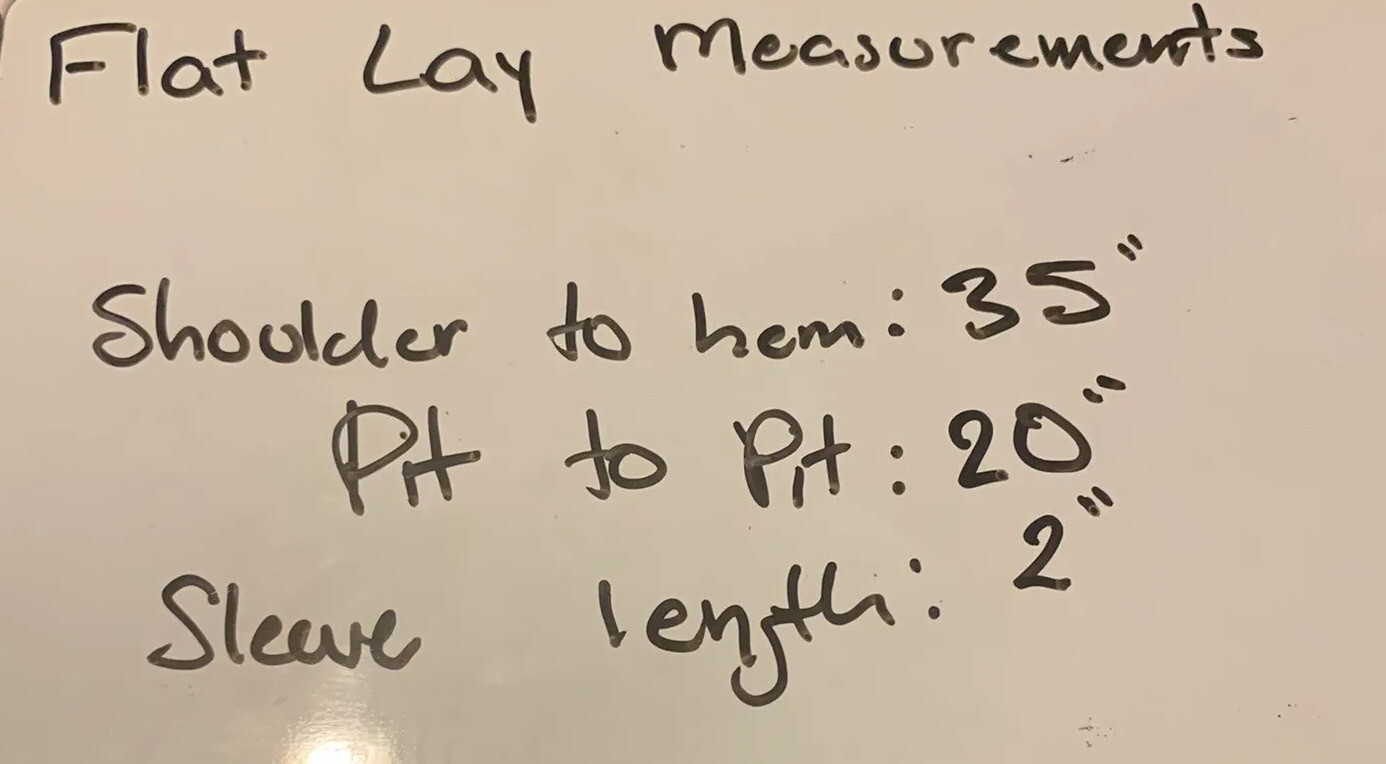 Flat Lay Measurements
Shoulder to hem: 35"
Pit to Pit: 20"
Sleeve length: 2"